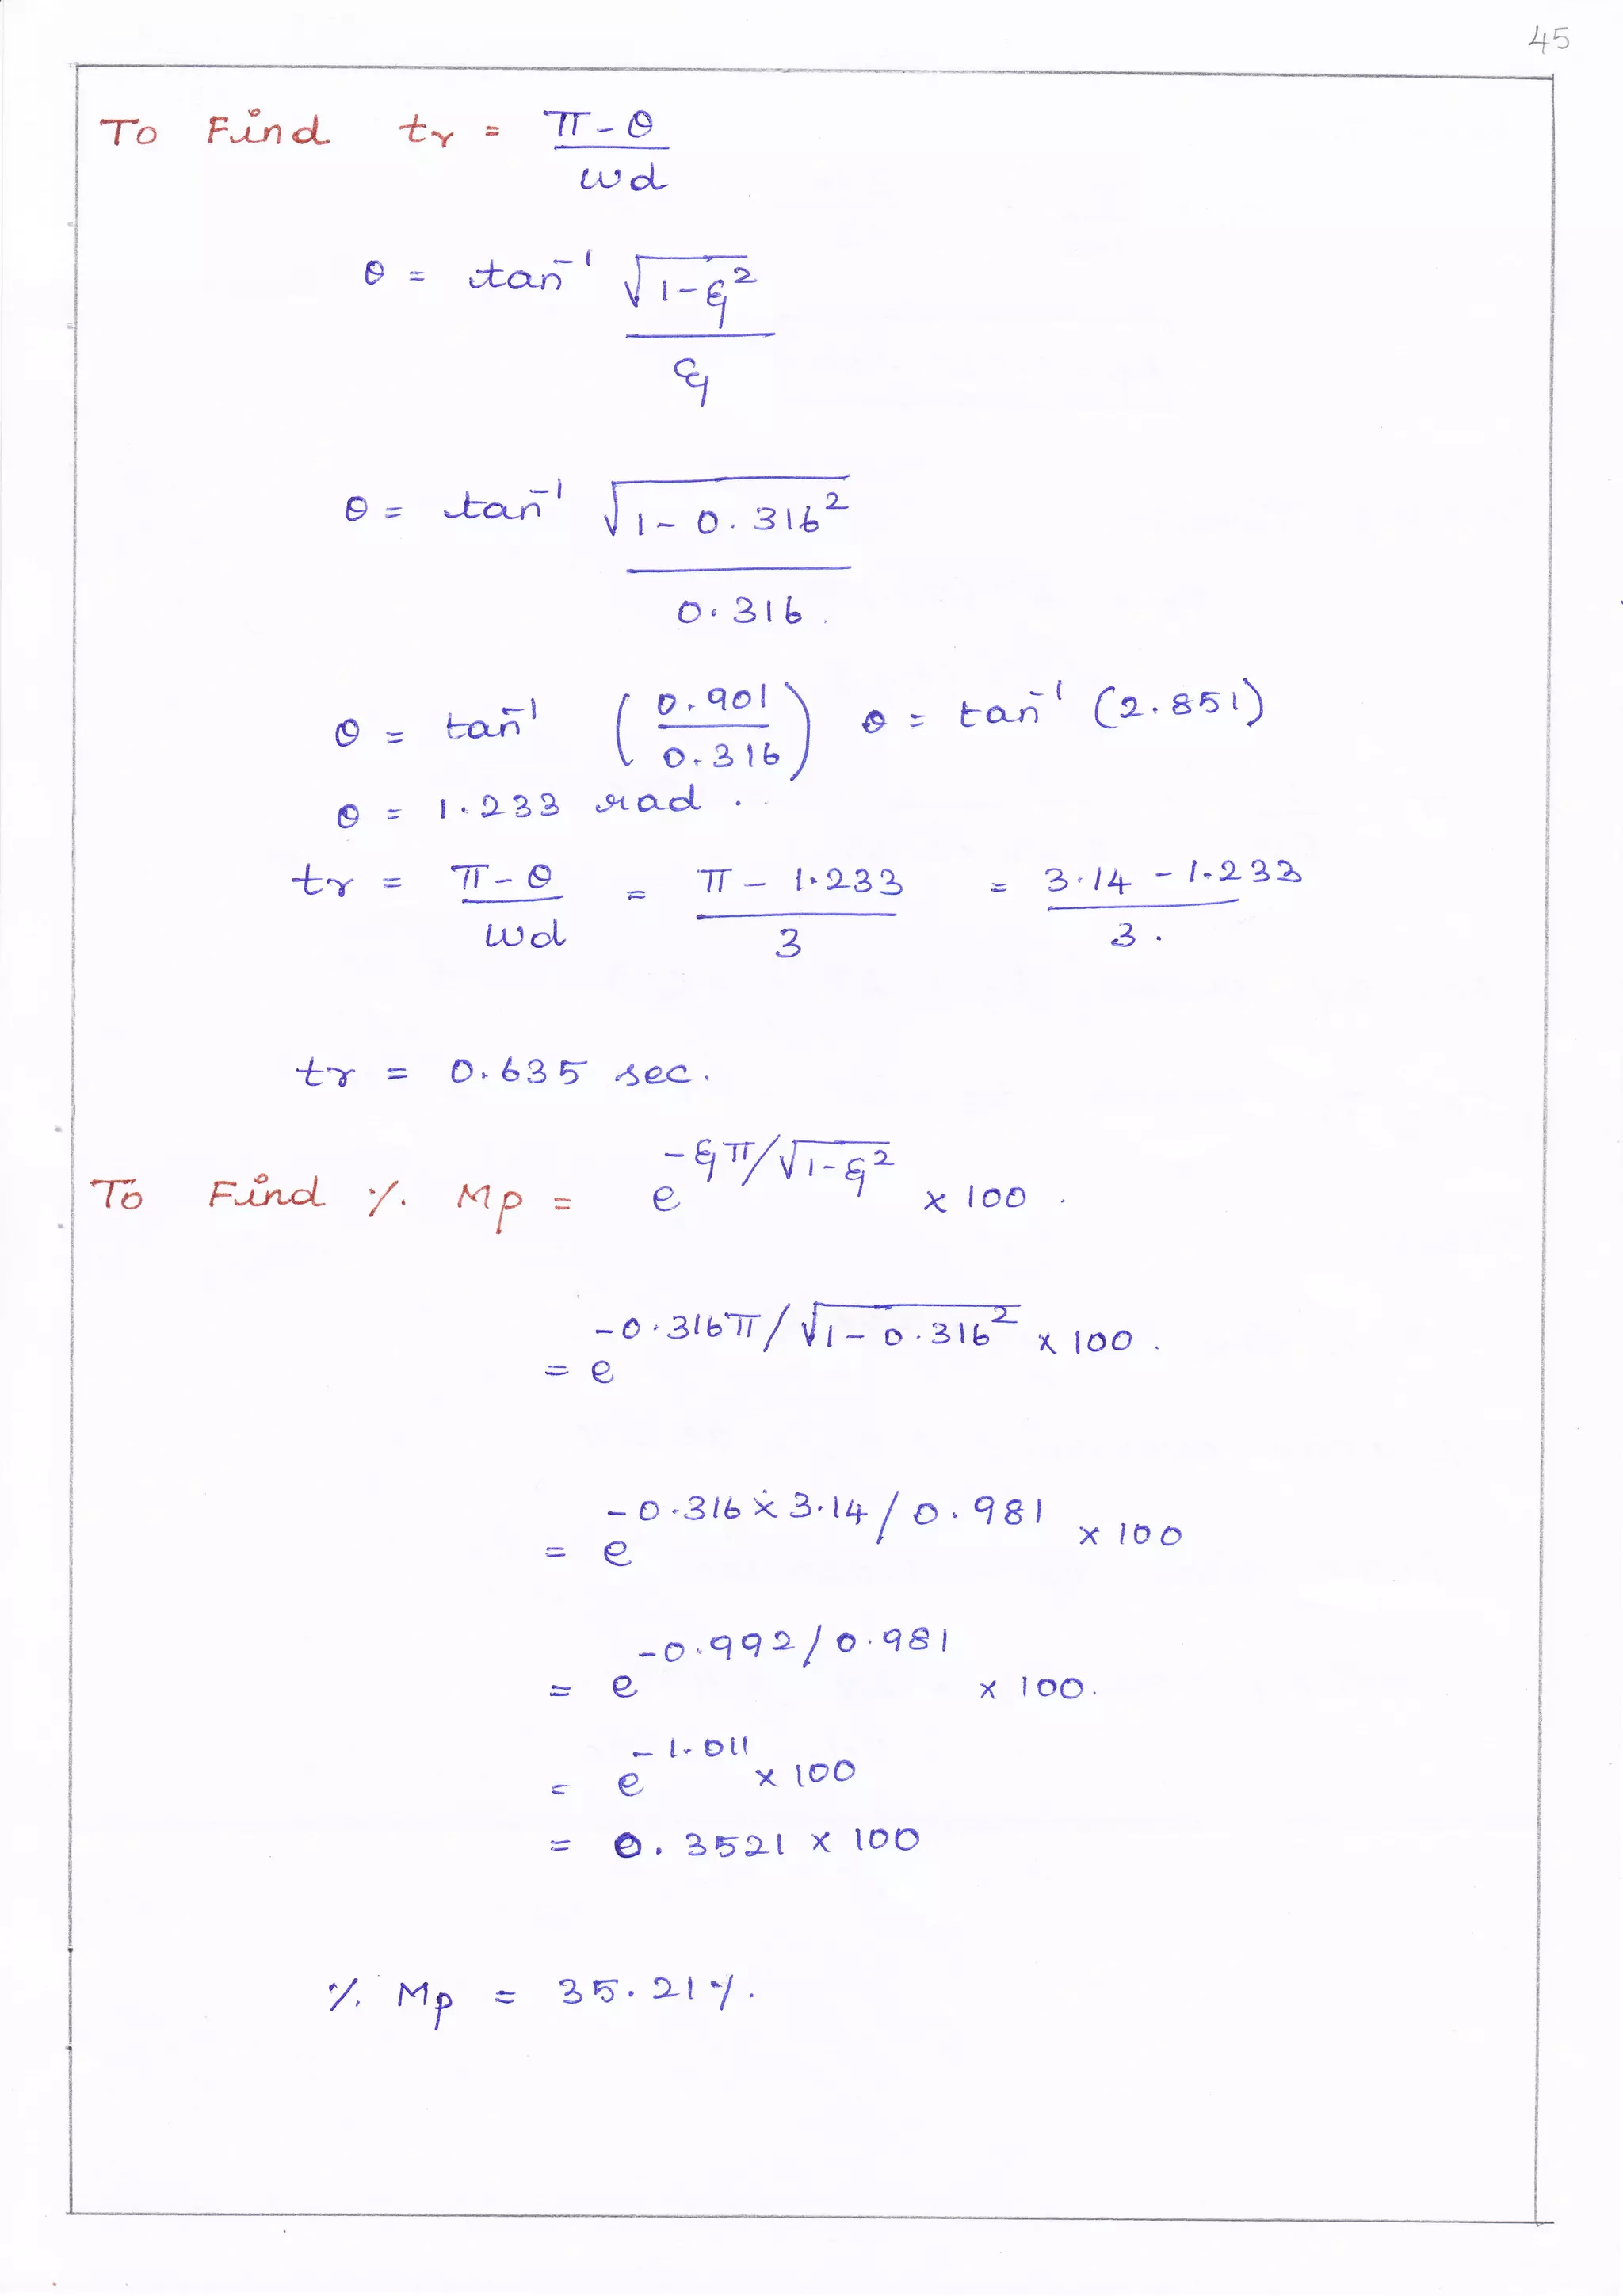 45
To Find tr = π - θ / wd
θ = tan⁻¹ √1-ξ² / ξ
θ = tan⁻¹ √1 - 0.316² / 0.316.
θ = tan⁻¹ (0.901 / 0.316) θ = tan⁻¹ (2.851)
θ = 1.233 rad.
tr = π - θ / wd = π - 1.233 / 3 = 3.14 - 1.233 / 3.
tr = 0.635 sec.
To Find % Mp = e^-ξπ/√1-ξ² × 100.
= e^-0.316π/√1-0.316² × 100.
= e^-0.316×3.14/0.981 × 100
= e^-0.992/0.981 × 100.
= e^-1.011 × 100
= 0.3521 × 100
% Mp = 35.21%.